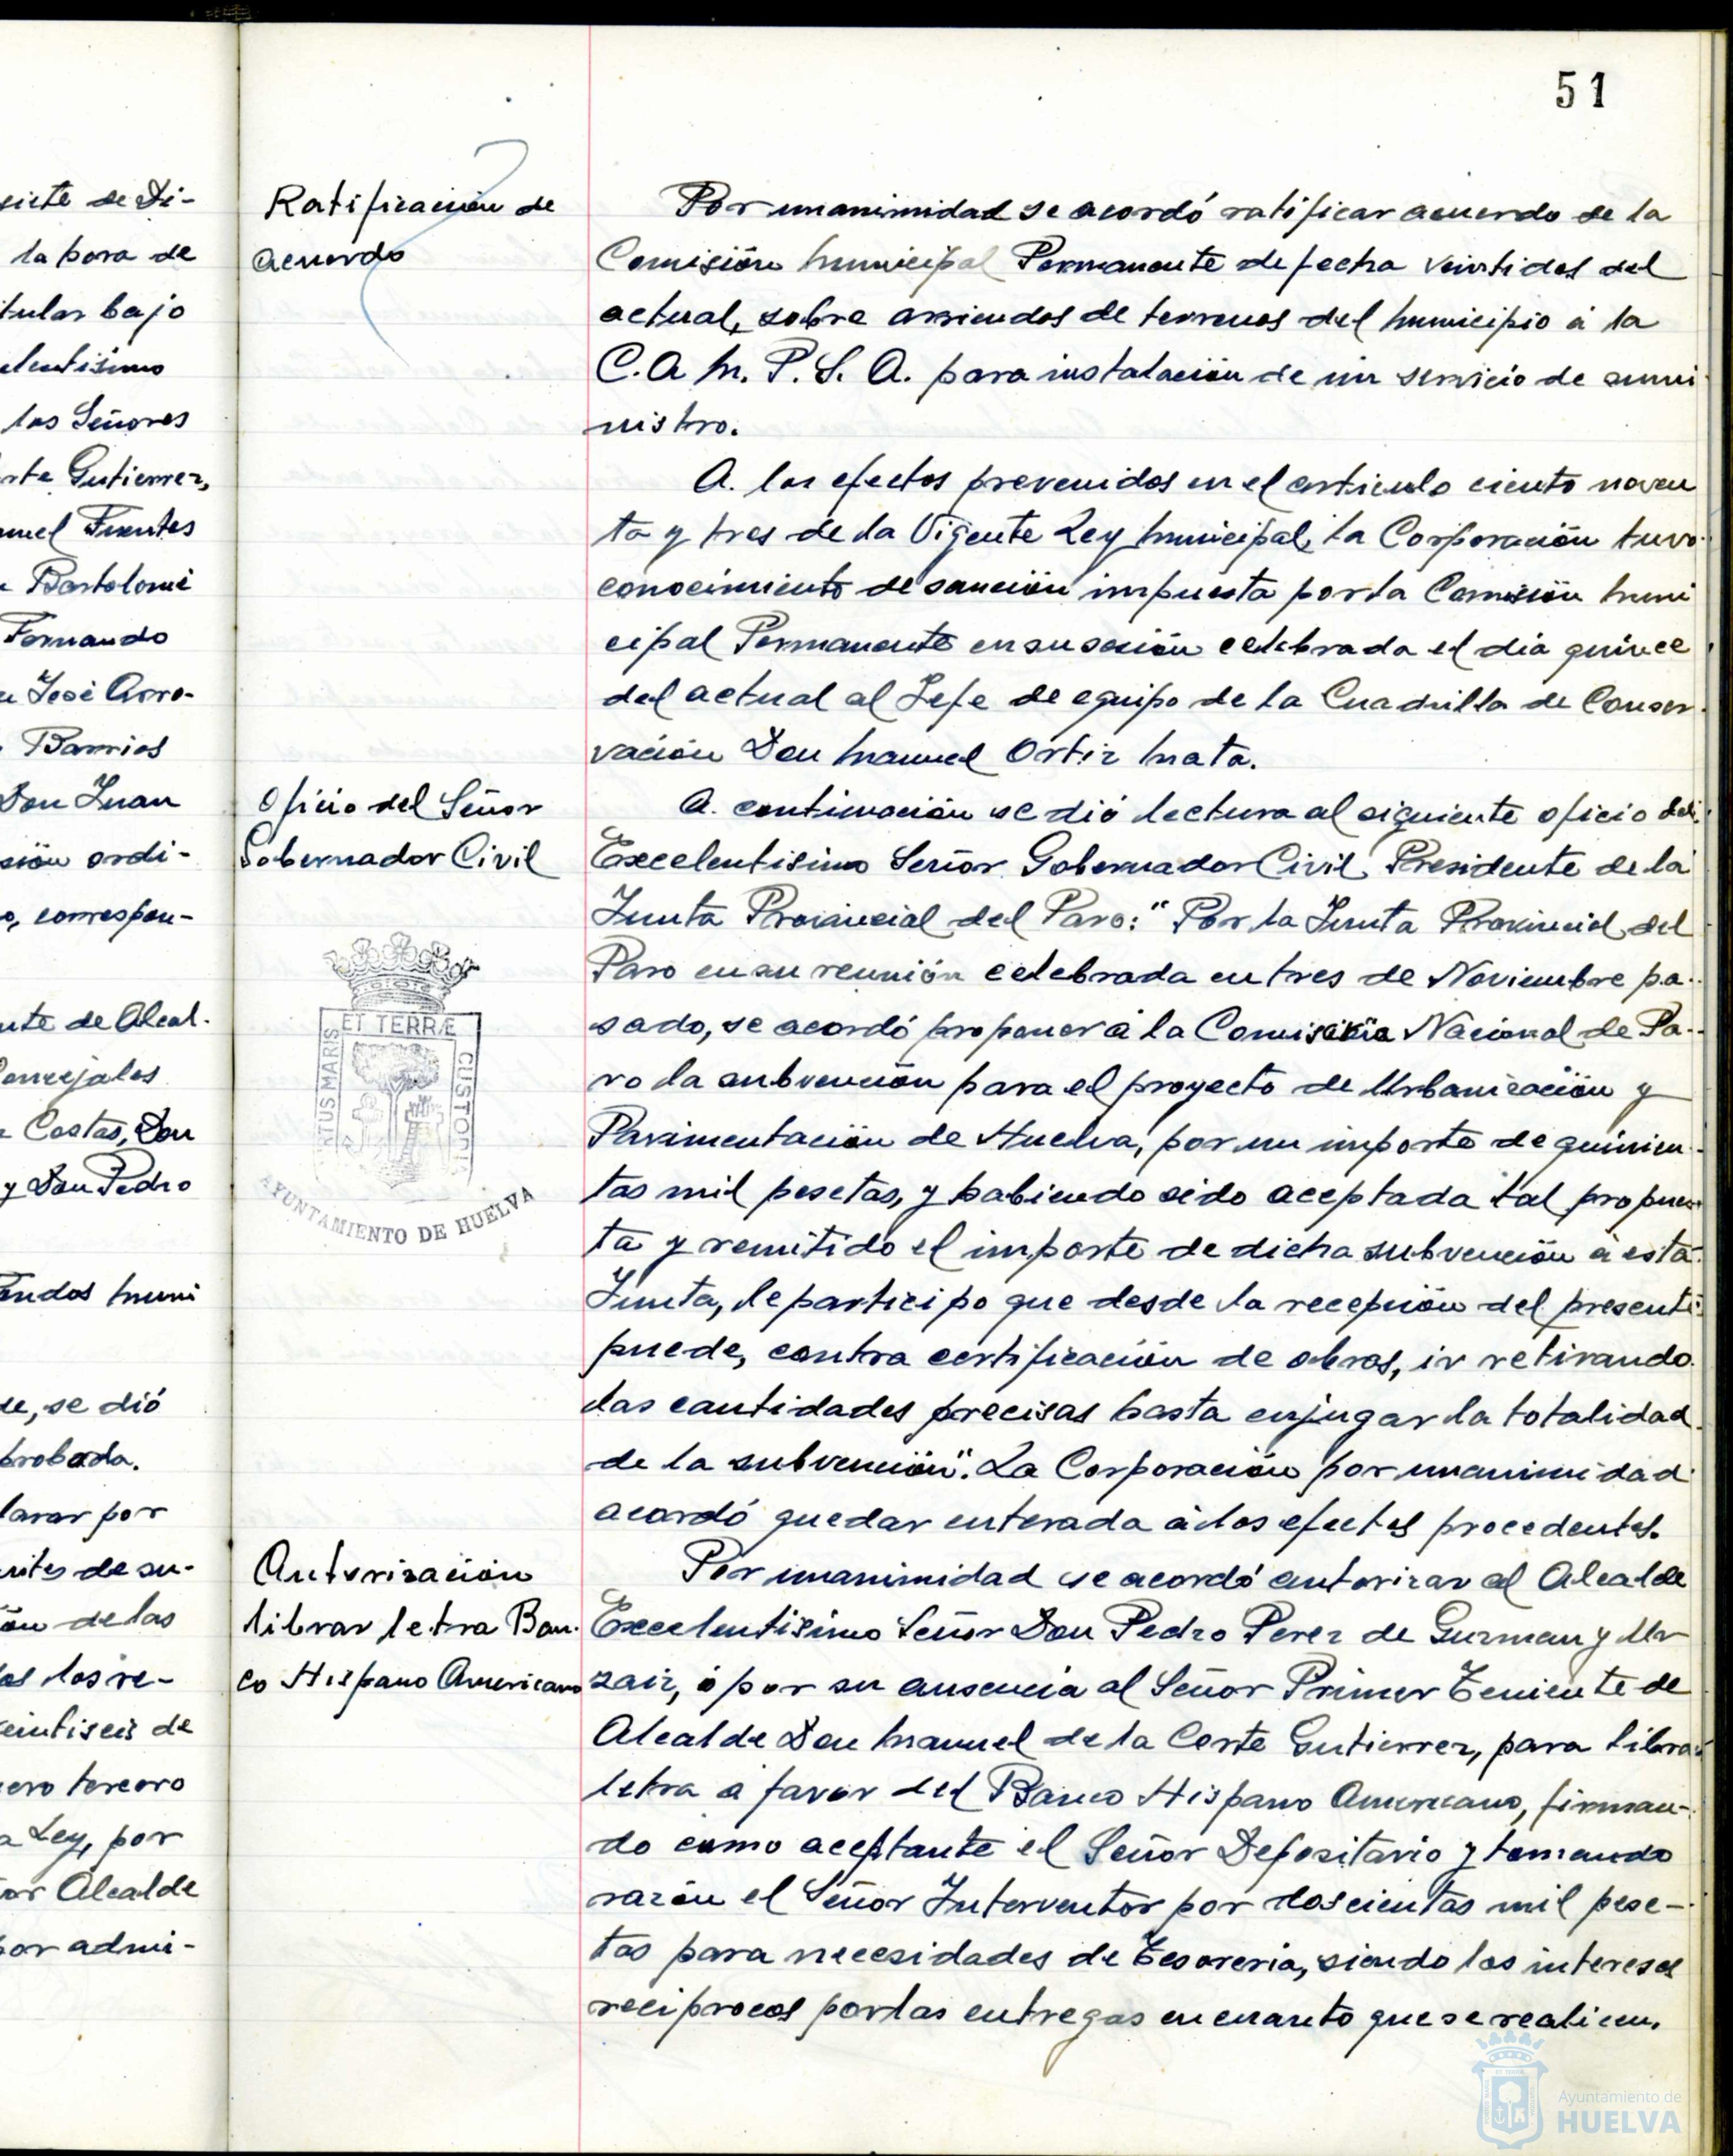 51
siete de Di-
la hora de
tular bajo
elentísimo
los Señores
rte Gutierrez,
nuel Fuentes
n Bartolomé
Fernando
n José Arro-
Barrios
Don Juan
sión ordi-
o, correspon-
nte de Alcal-
Concejales
Costas, Don
y Don Pedro
Fondos muni
de, se dió
probada.
larar por
ntes de su-
ón de las
los re-
veintiseis de
ero tercero
a Ley, por
or Alcalde
por admi-
Ratificación de
acuerdo
Por unanimidad se acordó ratificar acuerdo de la
Comisión Municipal Permanente de fecha veintidos del
actual, sobre arriendos de terrenos del Municipio á la
C.A.M.P.S.A. para instalación de un servicio de sumi
nistro.
A. los efectos prevenidos en el articulo ciento noven
ta y tres de la Vigente Ley Municipal, la Corporación tuvo
conocimiento de sanción impuesta por la Comisión Muni
cipal Permanente en su sesión celebrada el dia quince
del actual al Jefe de equipo de la Cuadrilla de Conser
vación Don Manuel Ortiz Mata.
Oficio del Señor
Gobernador Civil
A. continuación se dió lectura al siguiente oficio del
Excelentisimo Señor Gobernador Civil, Presidente de la
Junta Provincial del Paro: "Por la Junta Provincial del
Paro en su reunión celebrada en tres de Noviembre pa-
sado, se acordó proponer á la Comisión Nacional de Pa-
ro la subvención para el proyecto de Urbanización y
Pavimentación de Huelva, por un importe de quinien-
tas mil pesetas, y habiendo sido aceptada tal propues
ta y remitido el importe de dicha subvención á esta
Junta, le participo que desde la recepción del presente
puede, contra certificación de obras, ir retirando
las cantidades precisas hasta enjugar la totalidad
de la subvención". La Corporación por unanimidad
acordó quedar enterada á los efectos procedentes.
ET TERRÆ
PORTUS MARIS
CUSTODIA
AYUNTAMIENTO DE HUELVA
Autorización
librar letra Ban-
co Hispano Americano
Por unanimidad se acordó autorizar al Alcalde
Excelentísimo Señor Don Pedro Perez de Guzman y Ur
zaiz, ó por su ausencia al Señor Primer Teniente de
Alcalde Don Manuel de la Corte Gutierrez, para librar
letra á favor del Banco Hispano Americano, firman-
do como aceptante el Señor Depositario y tomando
razón el Señor Interventor por doscientas mil pese-
tas para necesidades de Tesoreria, siendo los intereses
reciprocos por las entregas en cuanto que se realicen.
Ayuntamiento de
HUELVA